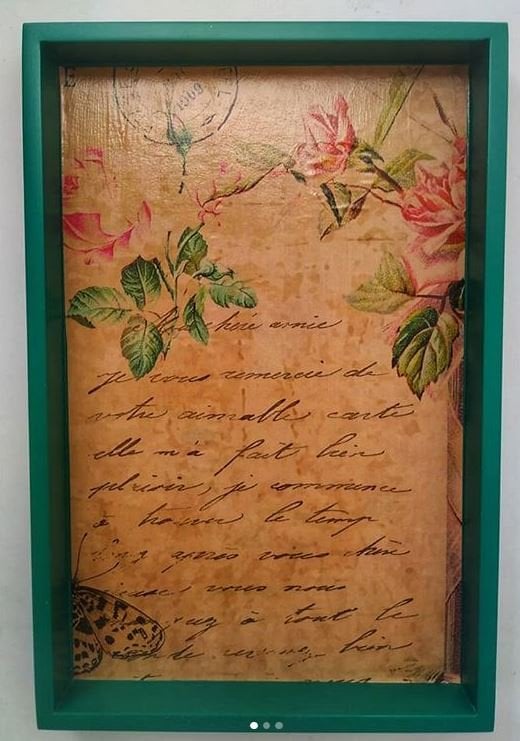 1909
chère amie
je vous remercie de
votre aimable carte
elle m'a fait bien
plaisir, je commence
à trouver le temp
long après vous chère
vous nous
à tout le
bien